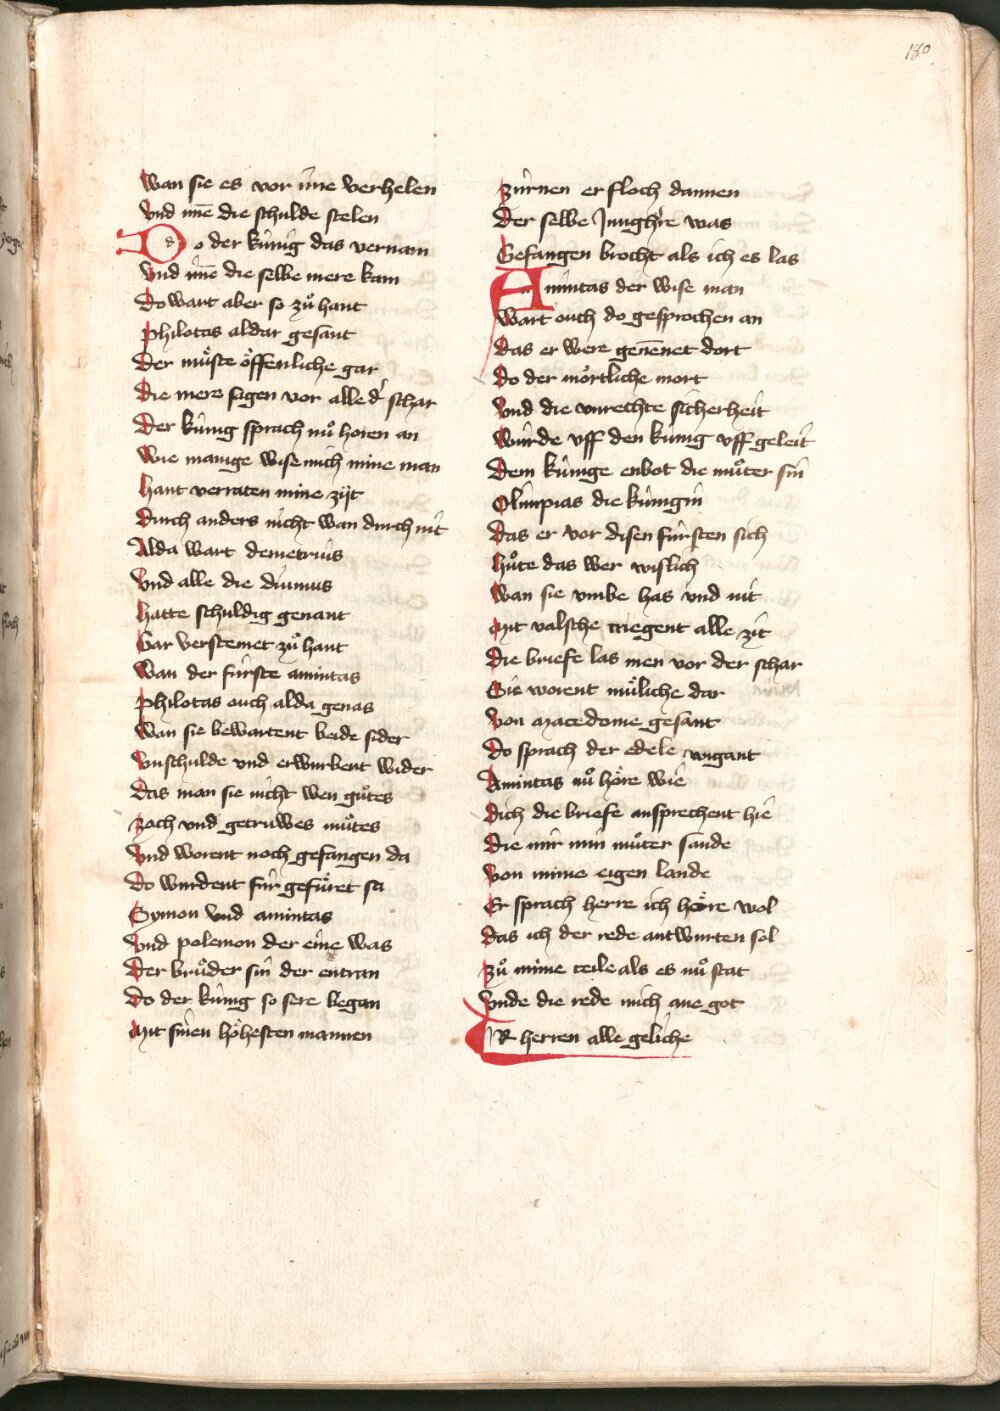 180
Wan sie es vor ime verhelen
Vnd imē die schulde stelen
Do der kúnig das vernam
Vnd imē die selbe mere kam
Do wart aber so zuͦ hant
Philotas aldar gesant
Der muͤste oͤffenliche gar
Die mere sagen vor alle d' schar
Der kúnig sprach nuͦ horen an
Wie manige wise mich mine man
Hant verraten mine zijt
Durch anders nicht wan durch nit
Alda wart demetrius
Vnd alle die dinmus
Hatte schuldig genant
Gar versteinet zuͦ hant
Wan der fúrste amintas
Philotas ouch alda genas
Wan sie bewartent beide sider
Vnschulde vnd erwurbent wider
Das man sie nicht wen guͦtes
Zoch vnd getruwes muͦtes
Vnd worent noch gefangen da
Do wurdent fúr gefuͤret sa
Symon vnd amintas
Vnd polemon der eine was
Der bruͦder sin der entran
Do der kúnig so sere began
Mit sinen hoͤhesten mannen
Zúrnen er floch dannen
Der selbe Jungh're was
Gefangen brocht als ich es las
Amintas der wise man
Wart ouch do gesprochen an
Das er were genēnet dort
Do der moͤrtliche mort
Vnd die vnrechte sicherheit
Wúrde vff den kúnig vff geleit
Dem kúnige enbot die muͦter sin
Olimpias die kúnigin
Das er vor disen fúrsten sich
Huͦte das wer wislich
Wan sie vmbe has vnd nit
Mit valsche triegent alle zit
Die briefe las men vor der schar
Sie worent muͤliche dar
Von macedome gesant
Do sprach der edele wigant
Amintas nuͦ hoͤre wie
Dich die briefe ansprechent hie
Die mir min muͦter sande
Von mime eigen lande
Er sprach herre ich hoͤre wol
Das ich der rede antwurten sol
Zuͦ mime teile als es nuͦ stat
Vnde die rede mich ane got
IR herren alle geliche